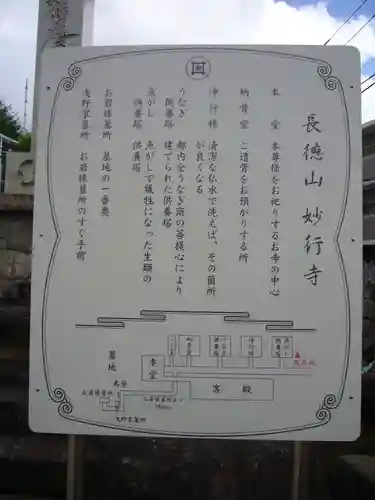 長徳山 妙行寺
本堂 本尊様をお祀りするお寺の中心
納骨堂 ご遺骨をお預かりする所
浄行様 清潔な仏水で洗えば、その箇所
が良くなる
うなぎ 都内全うなぎ商の菩提心により
供養塔 建てられた供養塔
魚がし 魚がしで犠牲になった生類の
供養塔 供養塔
お岩様墓所 墓地の一番奥
浅野家墓所 お岩様墓所のすぐ手前
墓地
本堂
客殿